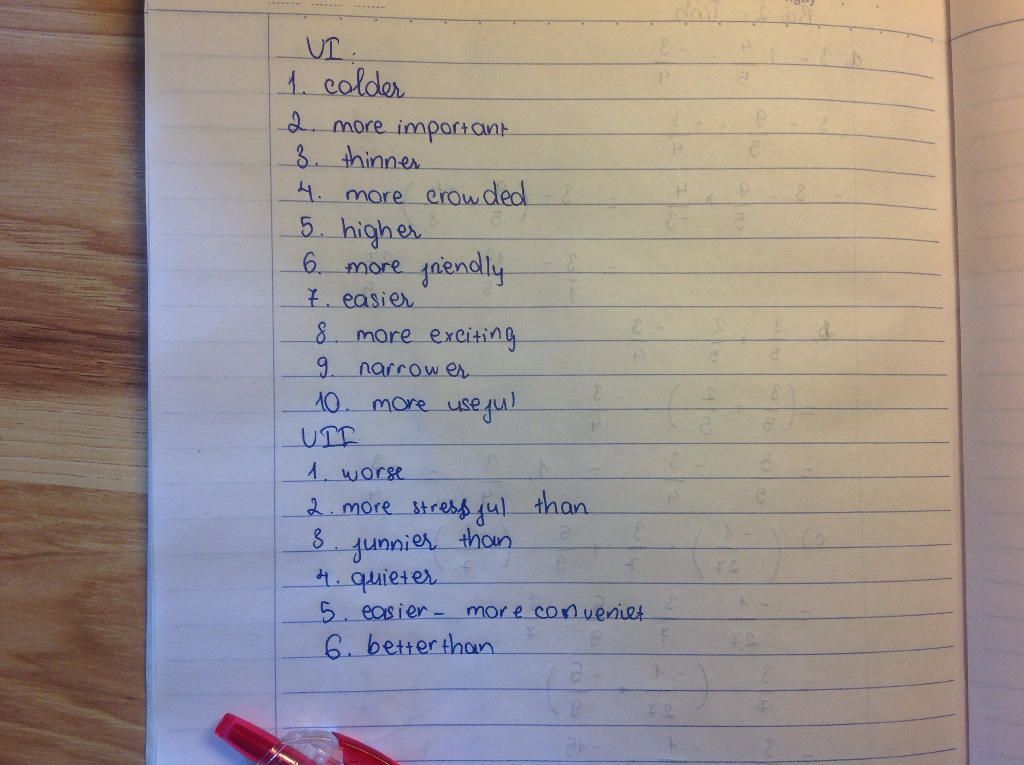 VI.
1. colder
2. more important
3. thinner
4. more crowded
5. higher
6. more friendly
7. easier
8. more exciting
9. narrower
10. more useful
VII
1. worse
2. more stressful than
3. funnier than
4. quieter
5. easier - more conveniet
6. better than